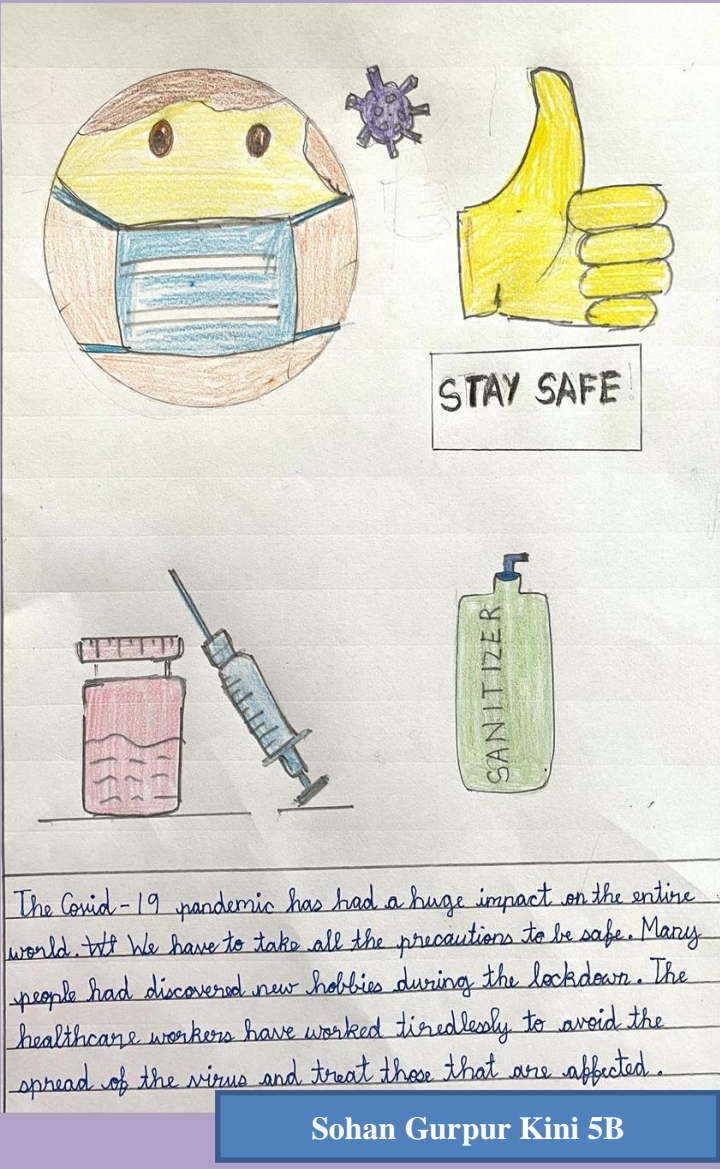 STAY SAFE!
SANITIZER
The Covid-19 pandemic has had a huge impact on the entire
world. We have to take all the precautions to be safe. Many
people had discovered new hobbies during the lockdown. The
healthcare workers have worked tiredlessly to avoid the
spread of the virus and treat those that are affected.
Sohan Gurpur Kini 5B